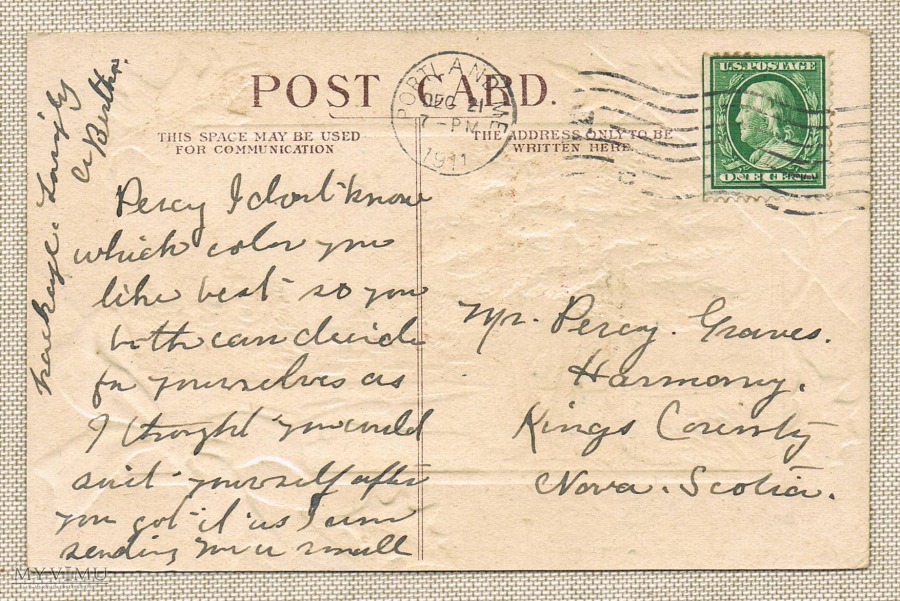 POST CARD.
THIS SPACE MAY BE USED
FOR COMMUNICATION
THE ADDRESS ONLY TO BE
WRITTEN HERE.
PORTLAND, ME
DEC 21
7-PM
1911
U.S. POSTAGE
ONE CENT
Percy I dont know
which color you
like best so you
both can decide
for yourselves as
I thought you could
suit yourself after
you got it as I am
sending you a small
package. Lovingly
Bertha.
Mr. Percy. Graves.
Harmony.
Kings County
Nova. Scotia.
MYVIMU